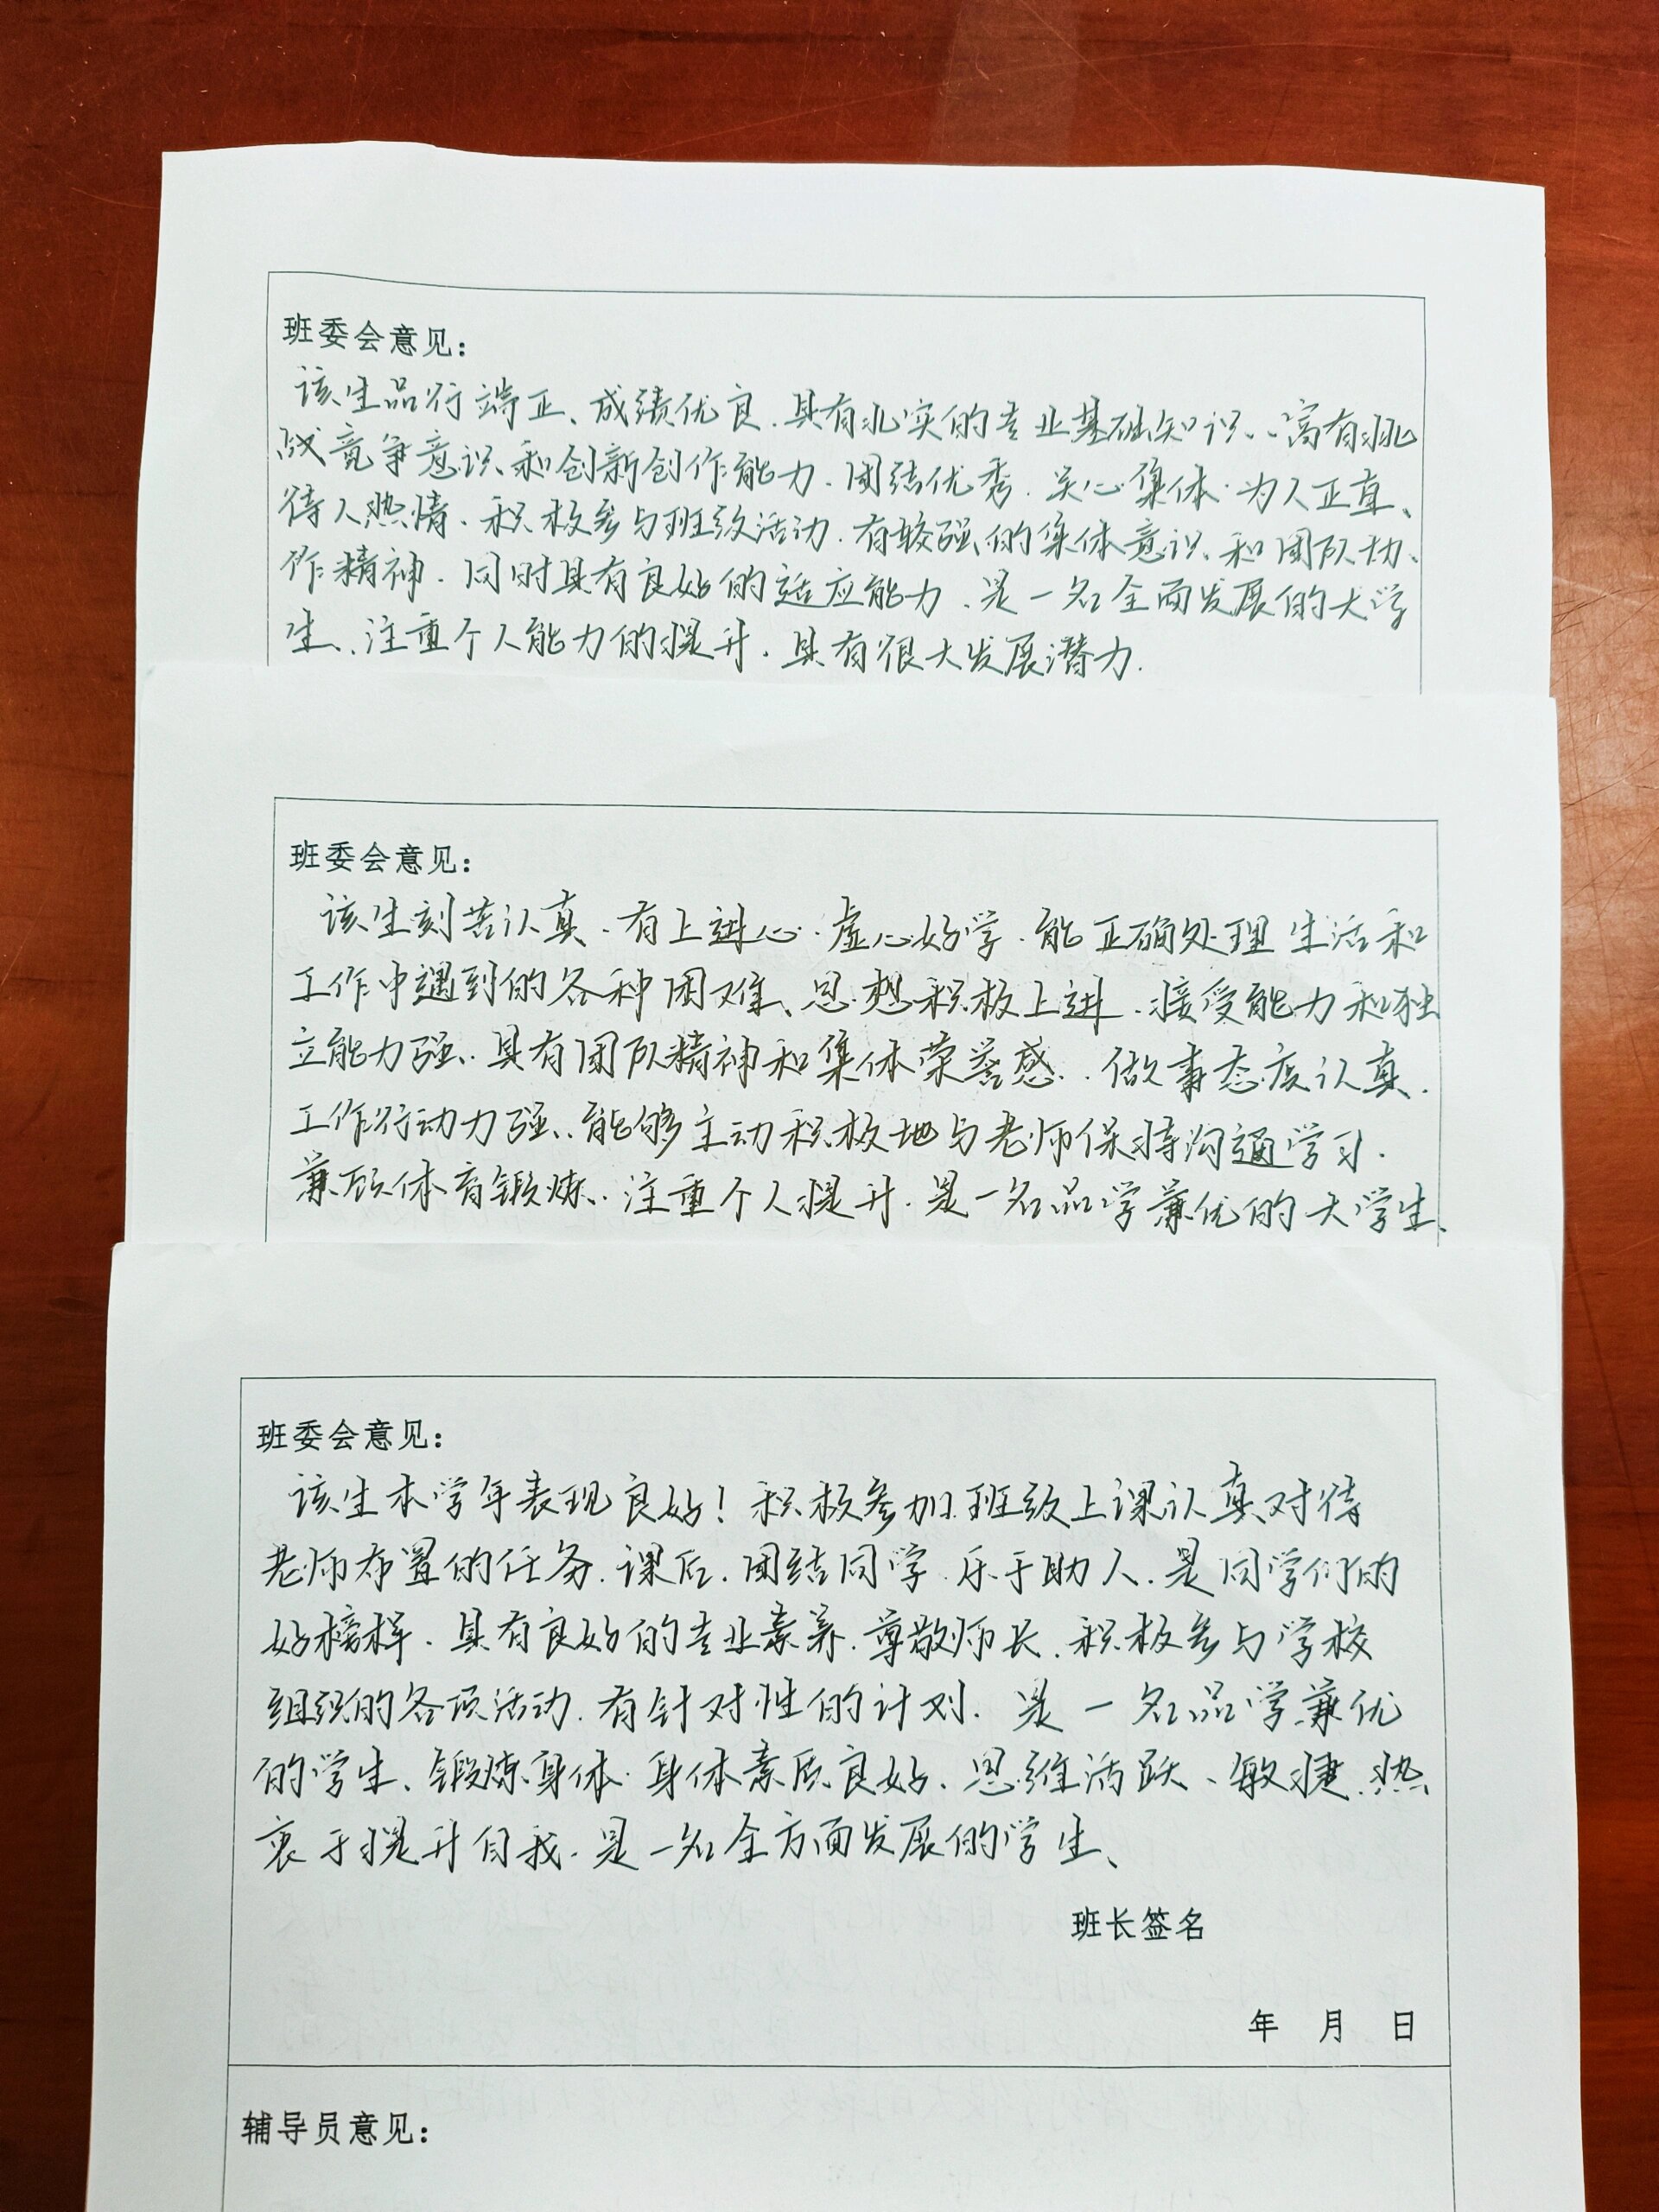 班委会意见：
该生品行端正、成绩优良.具有扎实的专业基础知识、富有挑
战竞争意识和创新创作能力.团结优秀.关心集体.为人正直、
待人热情.积极参与班级活动.有较强的集体意识和团队协
作精神.同时具有良好的适应能力.是一名全面发展的大学
生、注重个人能力的提升.具有很大发展潜力.
班委会意见：
该生刻苦认真.有上进心.虚心好学.能正确处理生活和
工作中遇到的各种困难、思想积极上进.接受能力和独
立能力强、具有团队精神和集体荣誉感.做事态度认真.
工作行动力强、能够主动积极地与老师保持沟通学习.
兼顾体育锻炼.注重个人提升.是一名品学兼优的大学生、
班委会意见：
该生本学年表现良好！积极参加班级上课认真对待
老师布置的任务.课后.团结同学.乐于助人.是同学们的
好榜样.具有良好的专业素养.尊敬师长.积极参与学校
组织的各项活动.有针对性的计划.是一名品学兼优
的学生、锻炼身体.身体素质良好.思维活跃、敏捷.热
衷于提升自我.是一名全方面发展的学生、
班长签名
年 月 日
辅导员意见：